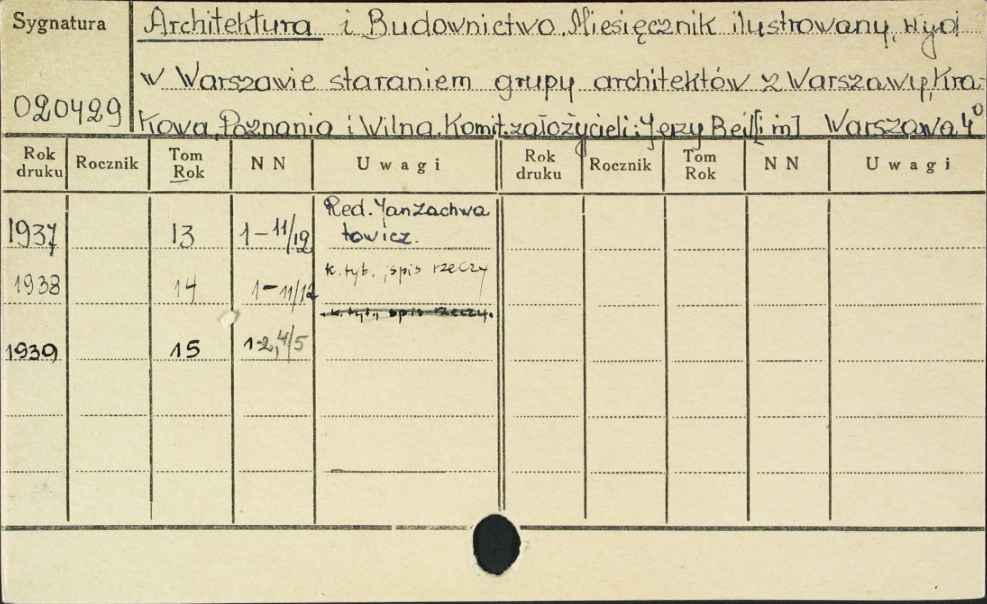 Sygnatura
020429
Architektura i Budownictwo. Miesięcznik ilustrowany, wyd
w Warszawie staraniem grupy architektów z Warszawy, Kra-
kowa, Poznania i Wilna. Komit. założycieli: Jerzy Beil [i in] Warszawa 4°
Rok druku Rocznik Tom Rok NN Uwagi Rok druku Rocznik Tom Rok NN Uwagi
1937 13 1-11/12 Red. Jan Zachwa
towicz.
1938 14 1-11/12 k. tyt., spis rzeczy
k. tyt., spis rzeczy.
1939 15 1-2, 4/5